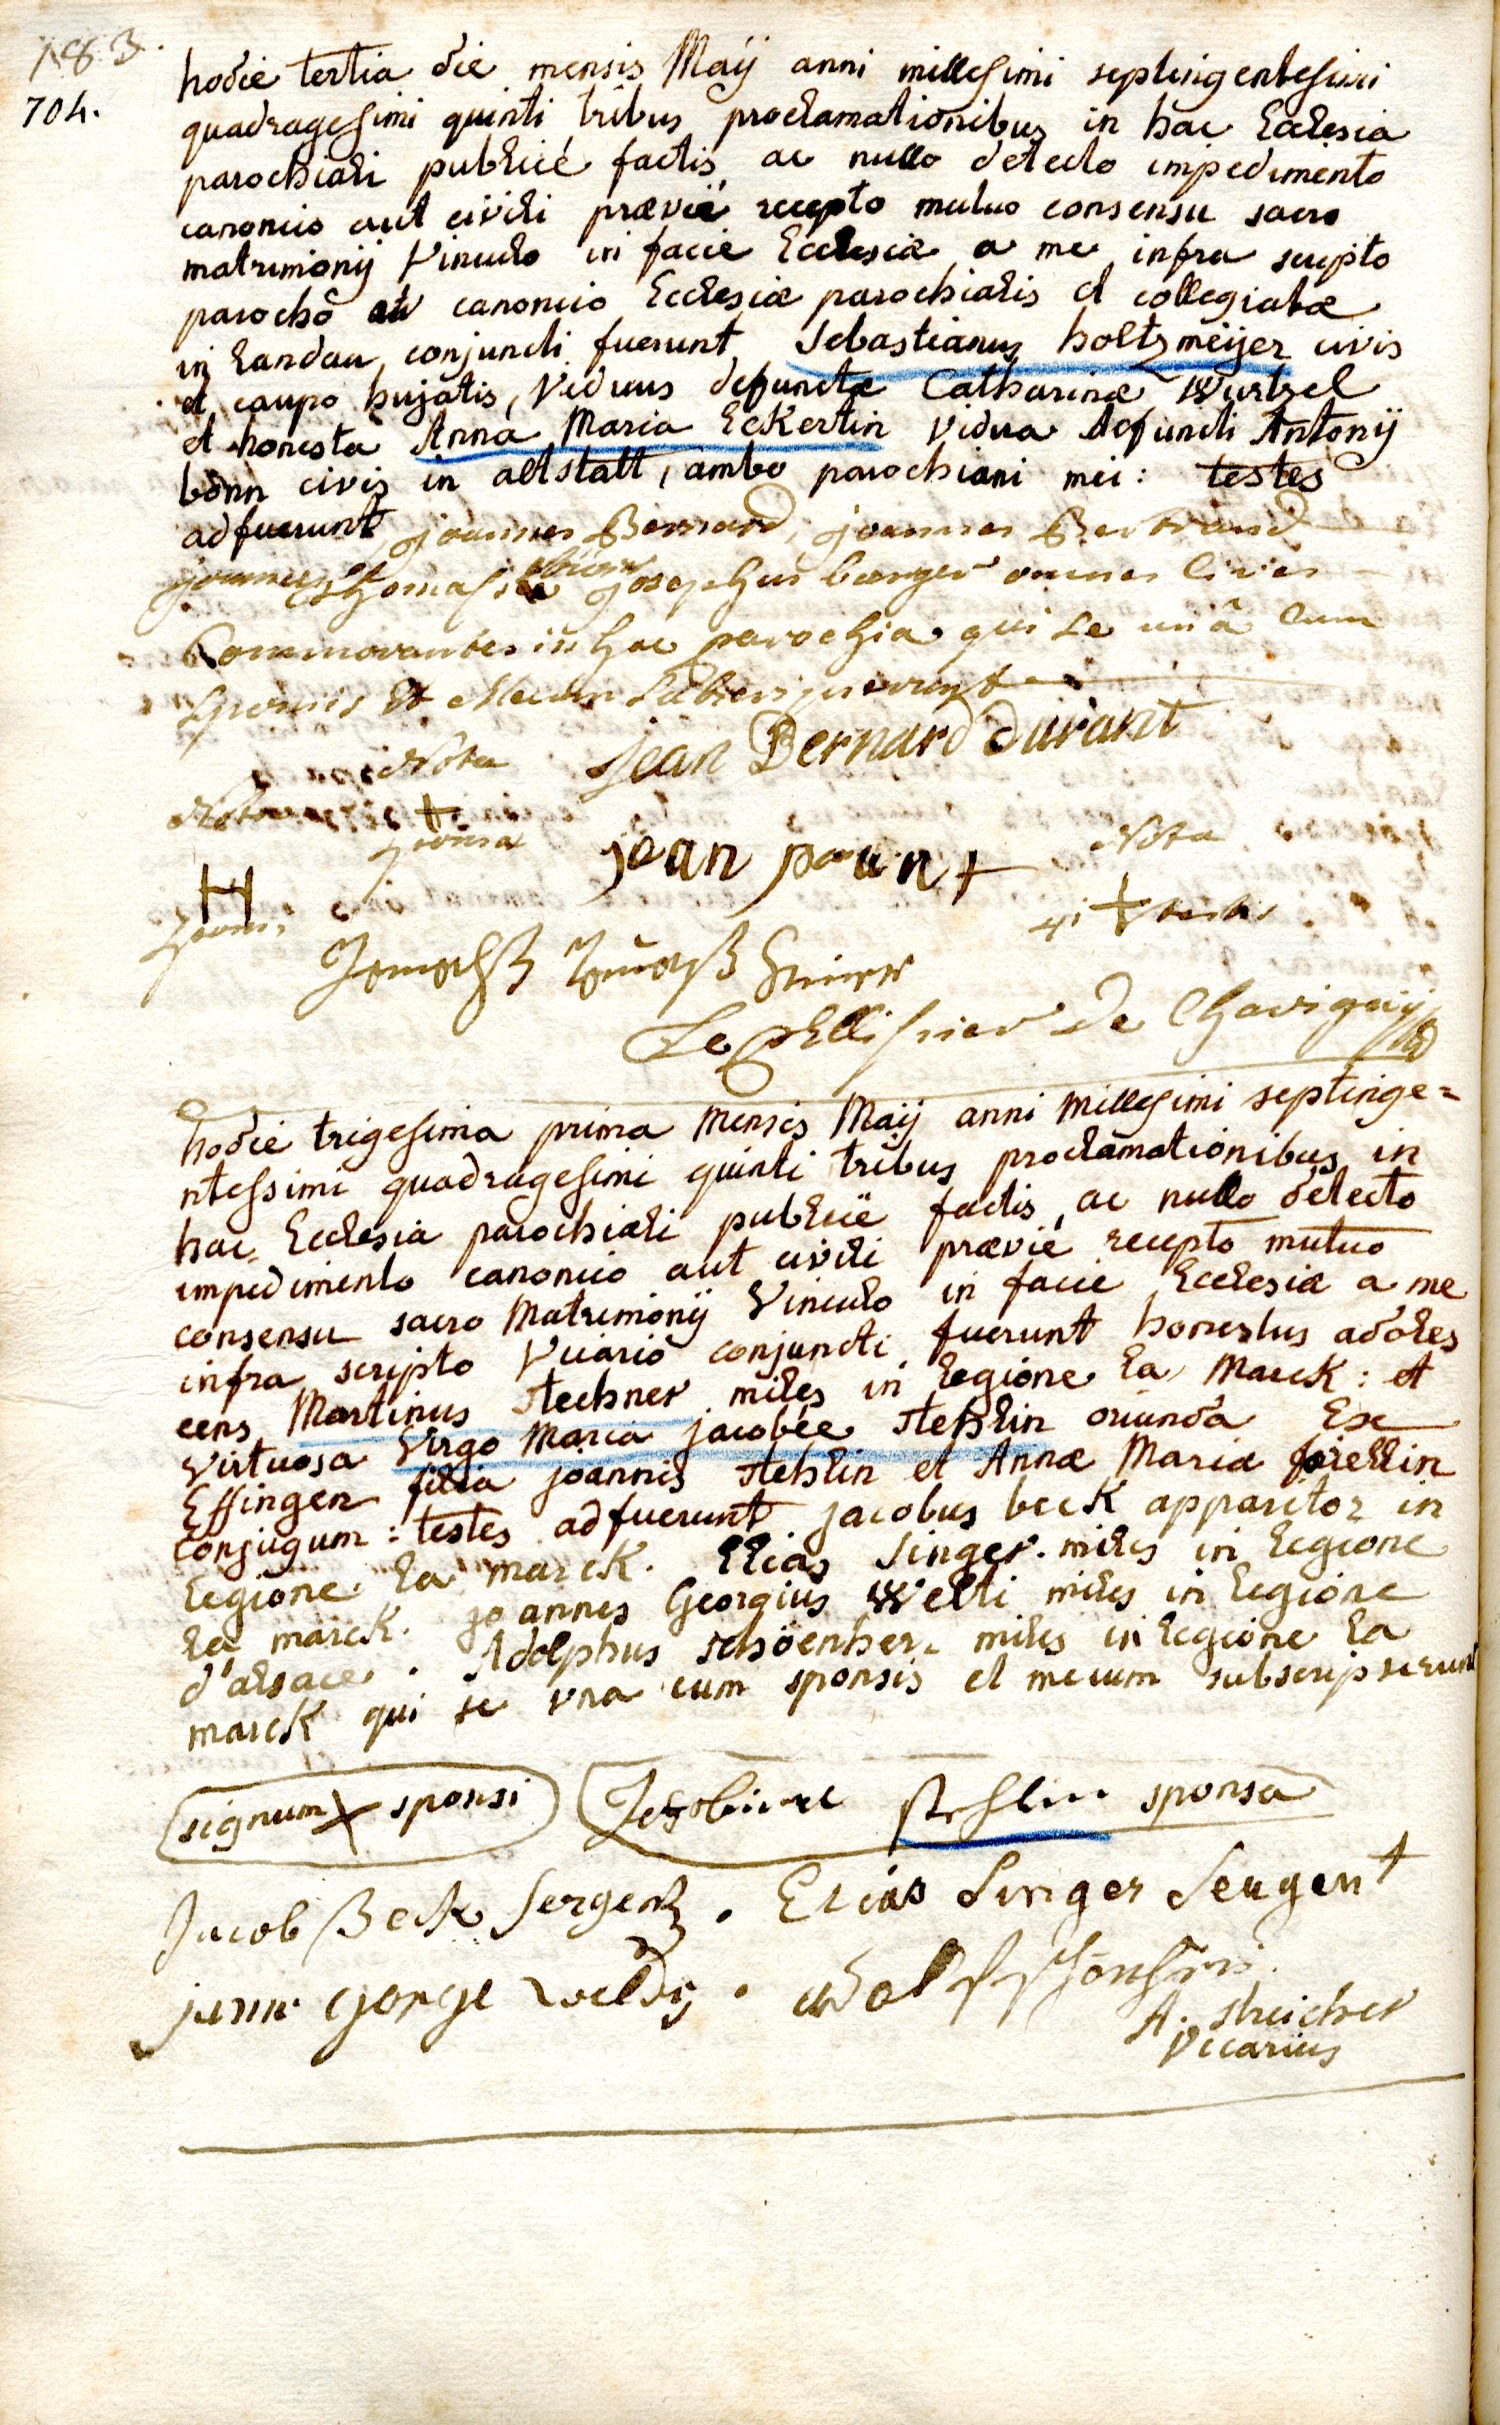 183.
704.
hodie tertia die mensis Maij anni millesimi septingentesimi
quadragesimi quinti tribus proclamationibus in hac Ecclesia
parochiali publicé factis ac nullo detecto impedimento
canonico aut civili prævie recepto mutuo consensu sacro
matrimonij Vinculo in facie Ecclesiæ a me infra scripto
parochô et canonico Ecclesiæ parochialis et collegiatæ
in Landau conjuncti fuerunt Sebastianus holtzmeijer civis
et caupo hujatis, Viduus defunctæ Catharinæ Wurtzel
et honesta Anna Maria Eckertin Vidua defuncti Antonij
bonn civis in altstatt, ambo parochiani mei: testes
adfuerunt, joannes Bernard, joannes Bertrand
joannes thomas josephus berger omnes Cives
Commorantes in hac parochia qui se unâ Cum
sponsis et Mecum Subscripserunt
Nota
jean Bernard durant
Nota
+
sponsæ
jean
Nota
H
+ testis
Le Pellissier De Chavignij
hodie trigesima prima Mensis Maij anni Millesimi septinge=
ntessimi quadragesimi quinti tribus proclamationibus in
hac Ecclesia parochiali publicè factis, ac nullo detecto
impedimento canonico aut civili prævie recepto mutuo
consensu sacro Matrimonij Vinculo in facie Ecclesiæ a me
infra scripto Vicariô conjuncti fuerunt honestus adoles
cens Martinus Stechner miles in Legione La Marck: et
virtuosa Virgo Maria jacobée Stehlin oriunda Ex
Effingen filia joannis Stehlin et Annæ Maria
Conjugum: testes adfuerunt jacobus beck apparitor in
Legione La marck. Elias Singer. miles in Legione
La marck. joannes Georgius Welti miles in Legione
d'alsace. Adolphus schöenherr miles in Legione La
marck qui se vna cum sponsis et mecum subscripserunt
signum X sponsi
Jacobine Stehlin sponsa
Jacob Beck Sergent. Elias Singer Seugent
jann gorge weldij.
A. Streicher
Vicarius